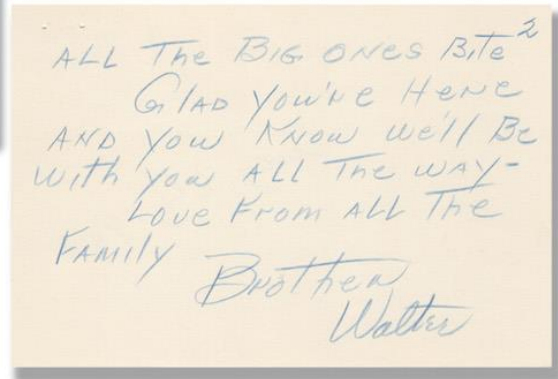 2
ALL The BIG ONES BiTe
GlAD YOU'RE HERE
AND YOU KNOW We'll Be
WiTh you ALL The WAY-
Love From ALL The
FAMILY
Brother
Walter